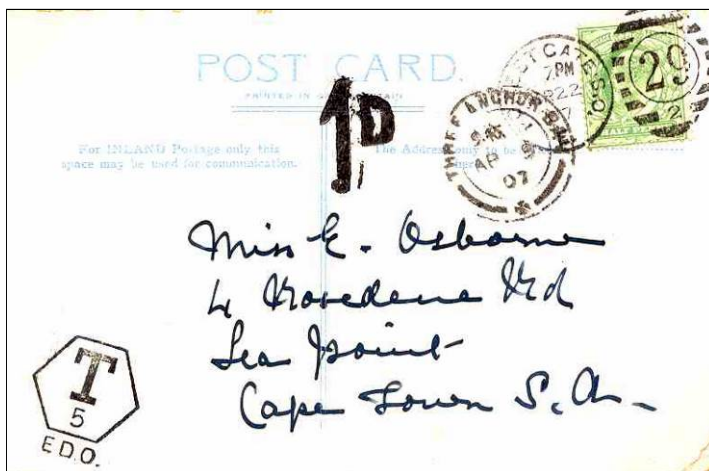 POST CARD.
PRINTED IN GREAT BRITAIN
For INLAND Postage only this
space may be used for communication.
The Address only to be
1D
7PM
22
29
2
HALF PENNY
THREE ANCHOR BAY
AP
07
Miss E. Osborne
4 Rosedene Rd
Sea Point
Cape Town S.A.
T
5
E.D.O.